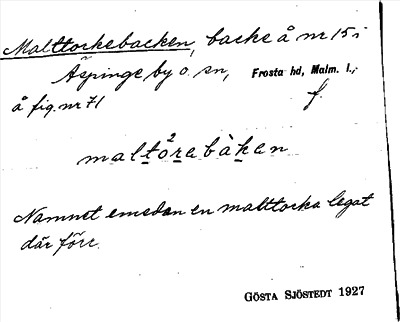 Malttorkebacken, backe å nr 15 i
Äspinge by o. sn, Frosta hd, Malm. l.,
å fig. nr 71 f.
maltöraba̠kan
Namnet emedan en malttorka legat
där förr.
GÖSTA SJÖSTEDT 1927